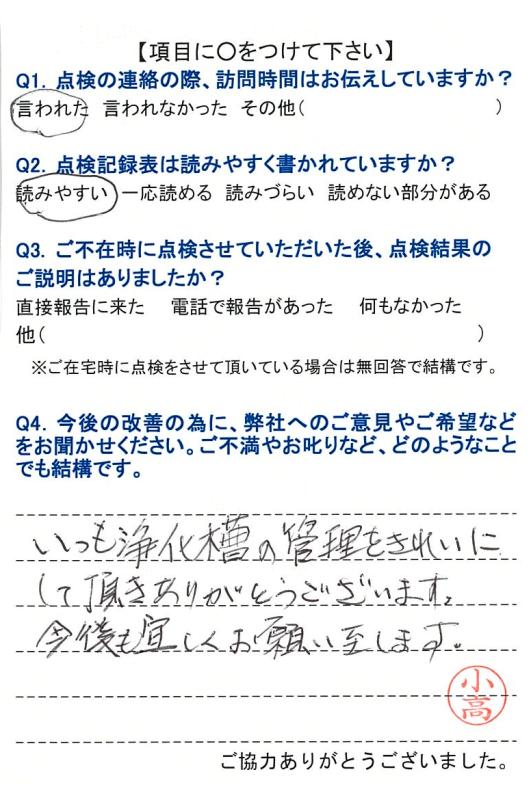 【項目に〇をつけて下さい】
Q1. 点検の連絡の際、訪問時間はお伝えしていますか？
言われた 言われなかった その他(　　　　　　　　　)
Q2. 点検記録表は読みやすく書かれていますか？
読みやすい 一応読める 読みづらい 読めない部分がある
Q3. ご不在時に点検させていただいた後、点検結果の
ご説明はありましたか？
直接報告に来た　電話で報告があった　何もなかった
他(　　　　　　　　　　　　　　　　　　　　)
※ご在宅時に点検をさせて頂いている場合は無回答で結構です。
Q4. 今後の改善の為に、弊社へのご意見やご希望など
をお聞かせください。ご不満やお叱りなど、どのようなこと
でも結構です。
いつも浄化槽の管理をきれいに
して頂きありがとうございます。
今後も宜しくお願い至します。
小高
ご協力ありがとうございました。